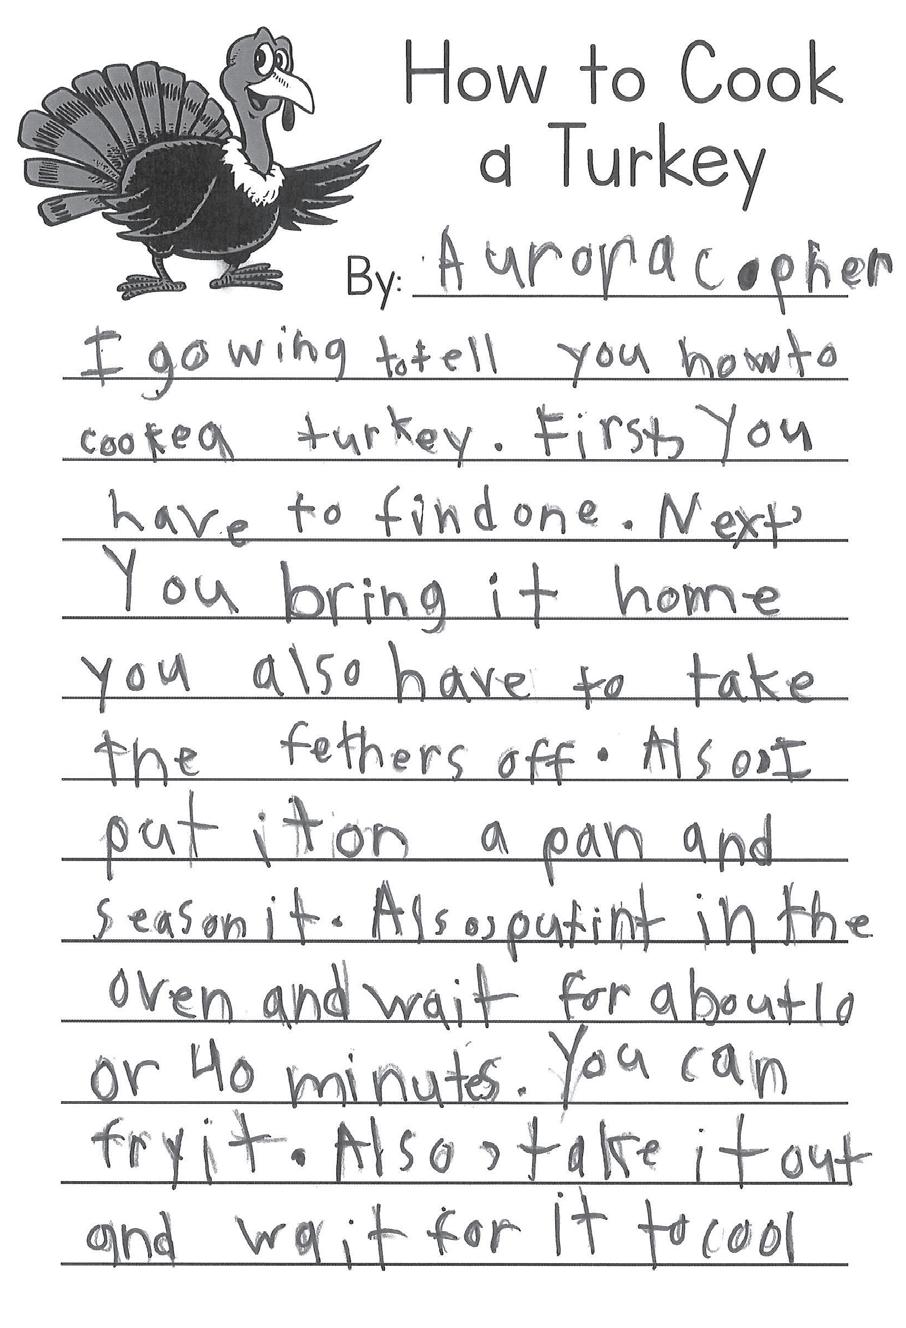 How to Cook
a Turkey
By: Aurora Copher
I gowing to tell you how to
cooke a turkey. First, You
have to find one. Next,
You bring it home
you also have to take
the fethers off. Also, I
put it on a pan and
season it. Also, put int in the
oven and wait for about 10
or 40 minutes. You can
fry it. Also, take it out
and wait for it to cool